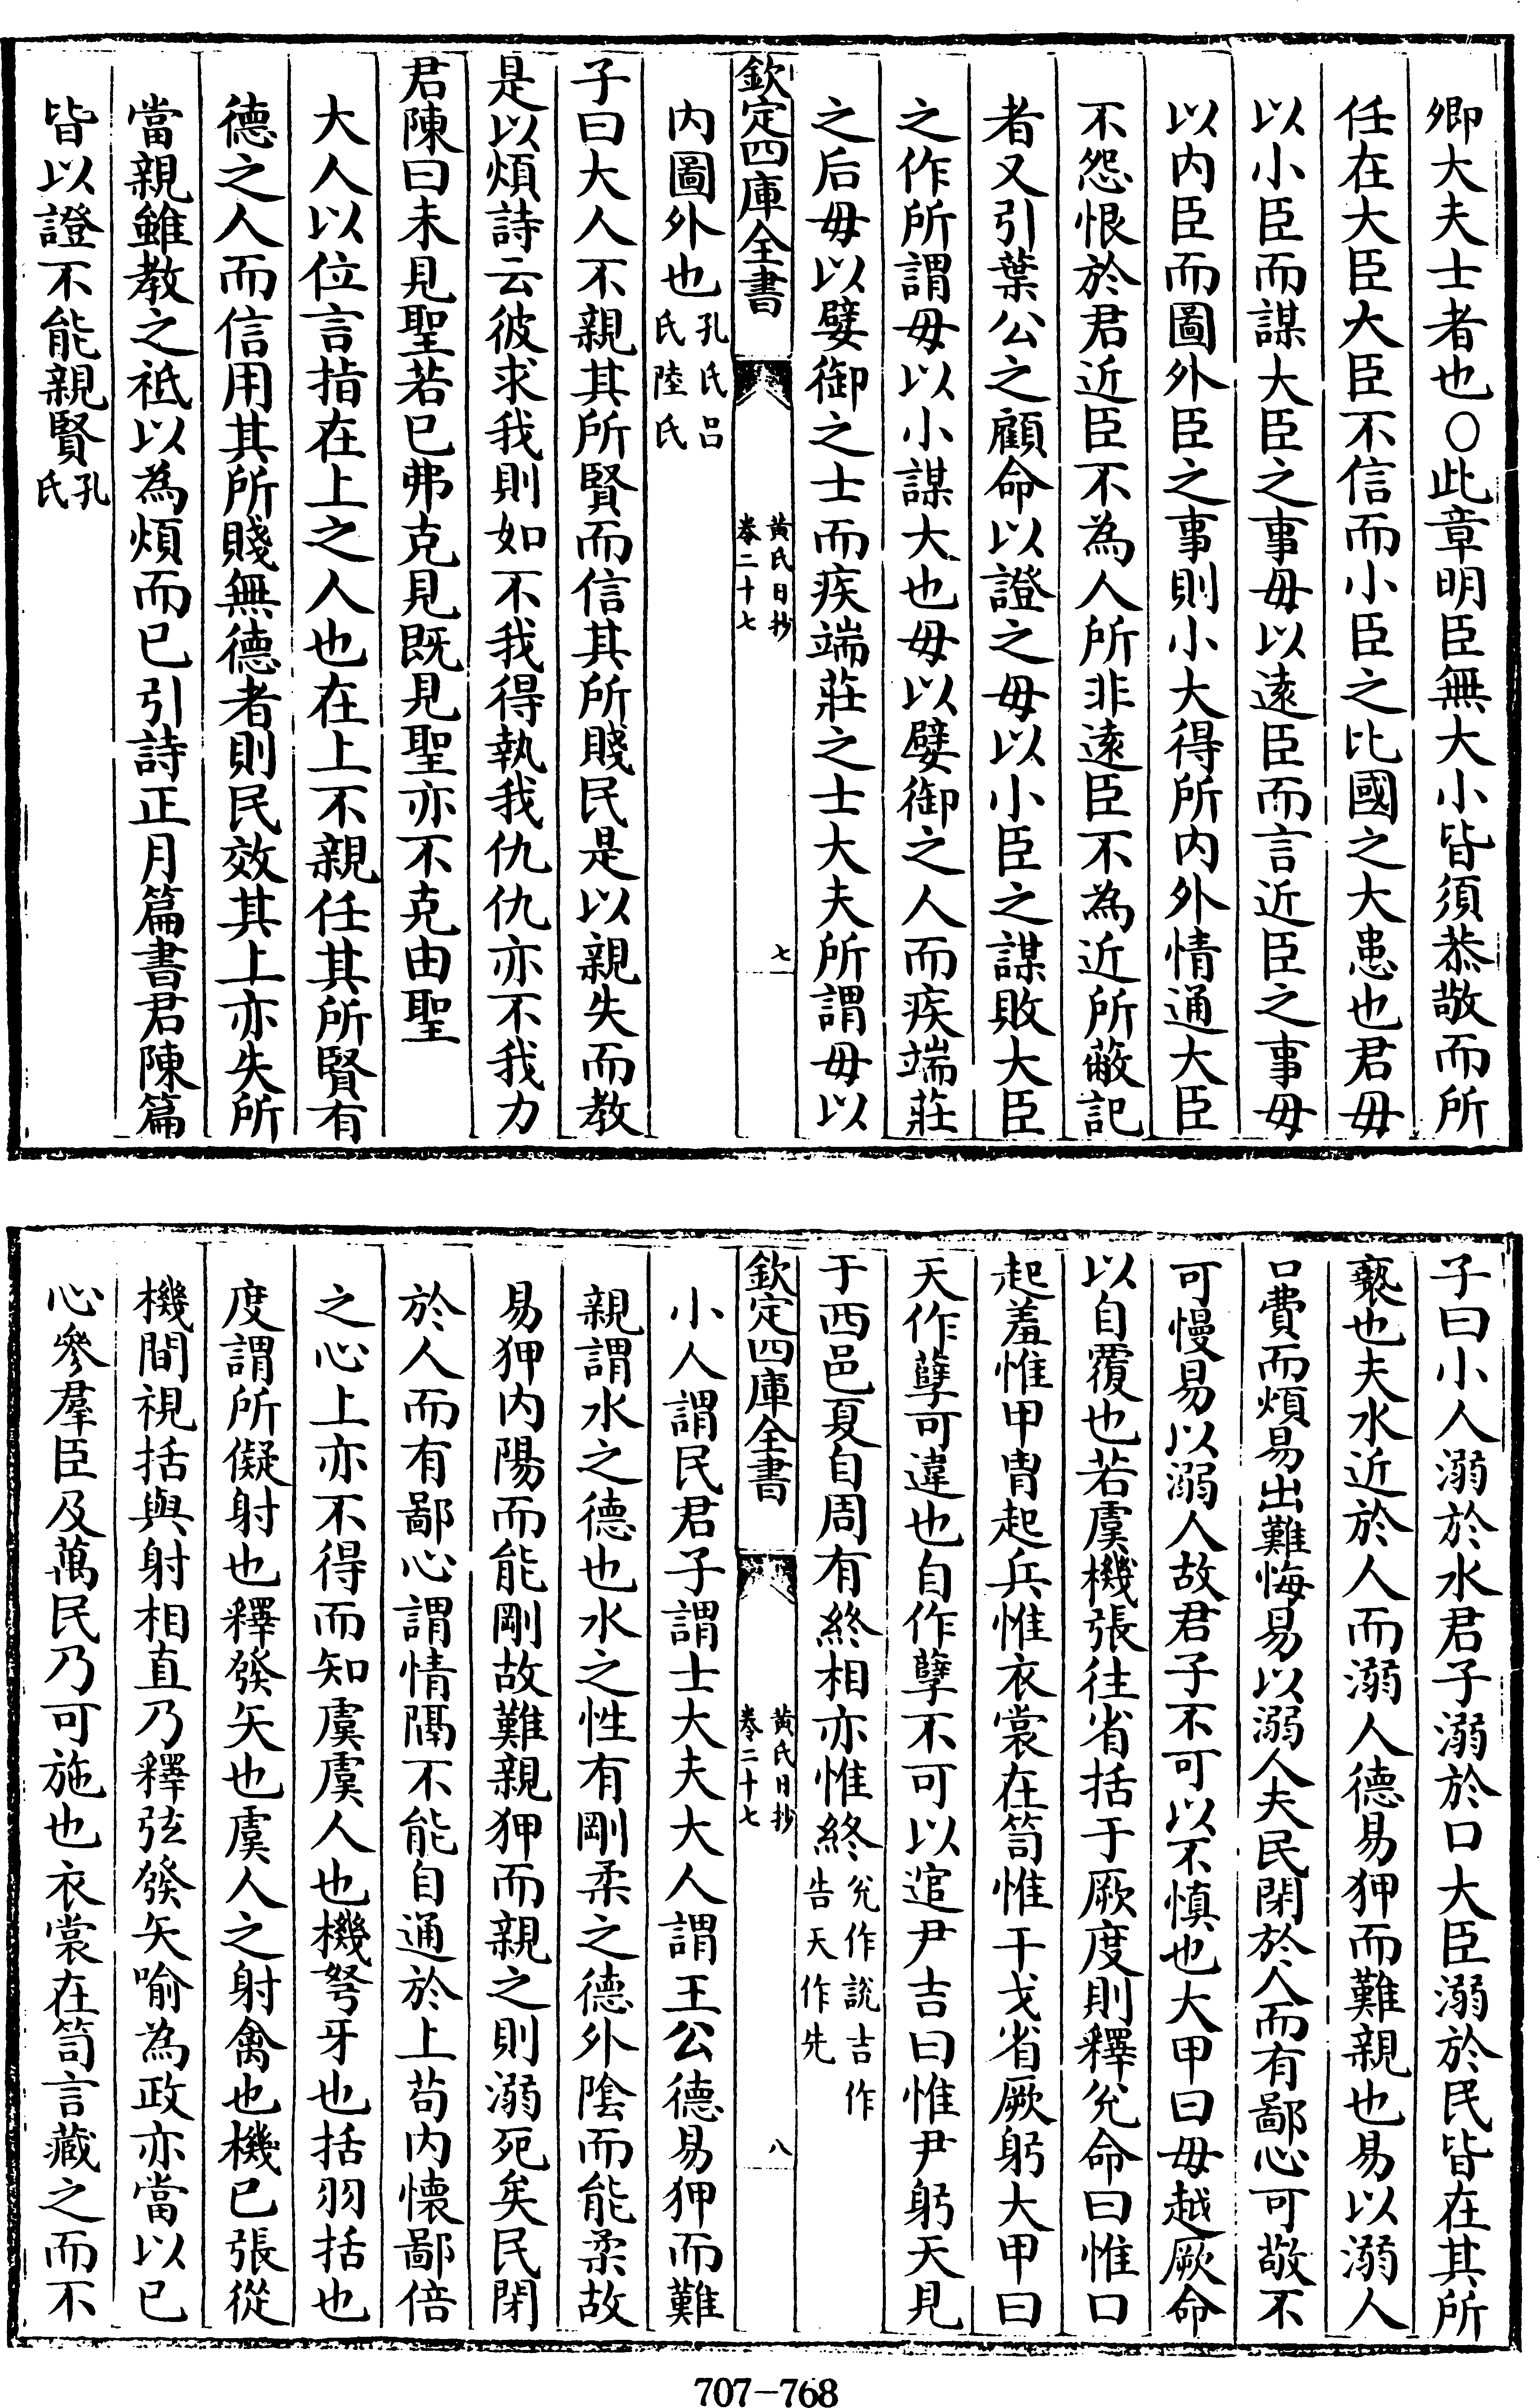 卿大夫士者也○此章明臣無大小皆須恭敬而所
任在大臣大臣不信而小臣之比國之大患也君毋
以小臣而謀大臣之事毋以遠臣而言近臣之事毋
以内臣而圖外臣之事則小大得所内外情通大臣
不怨恨於君近臣不為人所非遠臣不為近所蔽記
者又引葉公之顧命以證之毋以小臣之謀敗大臣
之作所謂毋以小謀大也毋以嬖御之人而疾端莊
之后毋以嬖御之士而疾端莊之士大夫所謂毋以
欽定四庫全書
黄氏日抄
卷二十七
七
内圖外也孔氏吕
氏陸氏
子曰大人不親其所賢而信其所賤民是以親失而教
是以煩詩云彼求我則如不我得執我仇仇亦不我力
君陳曰未見聖若已弗克見既見聖亦不克由聖
大人以位言指在上之人也在上不親任其所賢有
德之人而信用其所賤無德者則民效其上亦失所
當親雖教之祗以為煩而已引詩正月篇書君陳篇
皆以證不能親賢孔
氏
子曰小人溺於水君子溺於口大臣溺於民皆在其所
褻也夫水近於人而溺人德易狎而難親也易以溺人
口費而煩易出難悔易以溺人夫民閉於人而有鄙心可敬不
可慢易以溺人故君子不可以不慎也大甲曰毋越厥命
以自覆也若虞機張往省括于厥度則釋兊命曰惟口
起羞惟甲胄起兵惟衣裳在笥惟干戈省厥躬大甲曰
天作孽可違也自作孽不可以逭尹吉曰惟尹躬天見
于西邑夏自周有終相亦惟終兊作說吉作
告天作先
欽定四庫全書
黄氏日抄
卷二十七
八
小人謂民君子謂士大夫大人謂王公德易狎而難
親謂水之德也水之性有剛柔之德外陰而能柔故
易狎内陽而能剛故難親狎而親之則溺死矣民閉
於人而有鄙心謂情隔不能自通於上苟内懷鄙倍
之心上亦不得而知虞虞人也機弩牙也括羽括也
度謂所儗射也釋發矢也虞人之射禽也機已張從
機間視括與射相直乃釋弦發矢喻為政亦當以已
心參羣臣及萬民乃可施也衣裳在笥言藏之而不
707-768